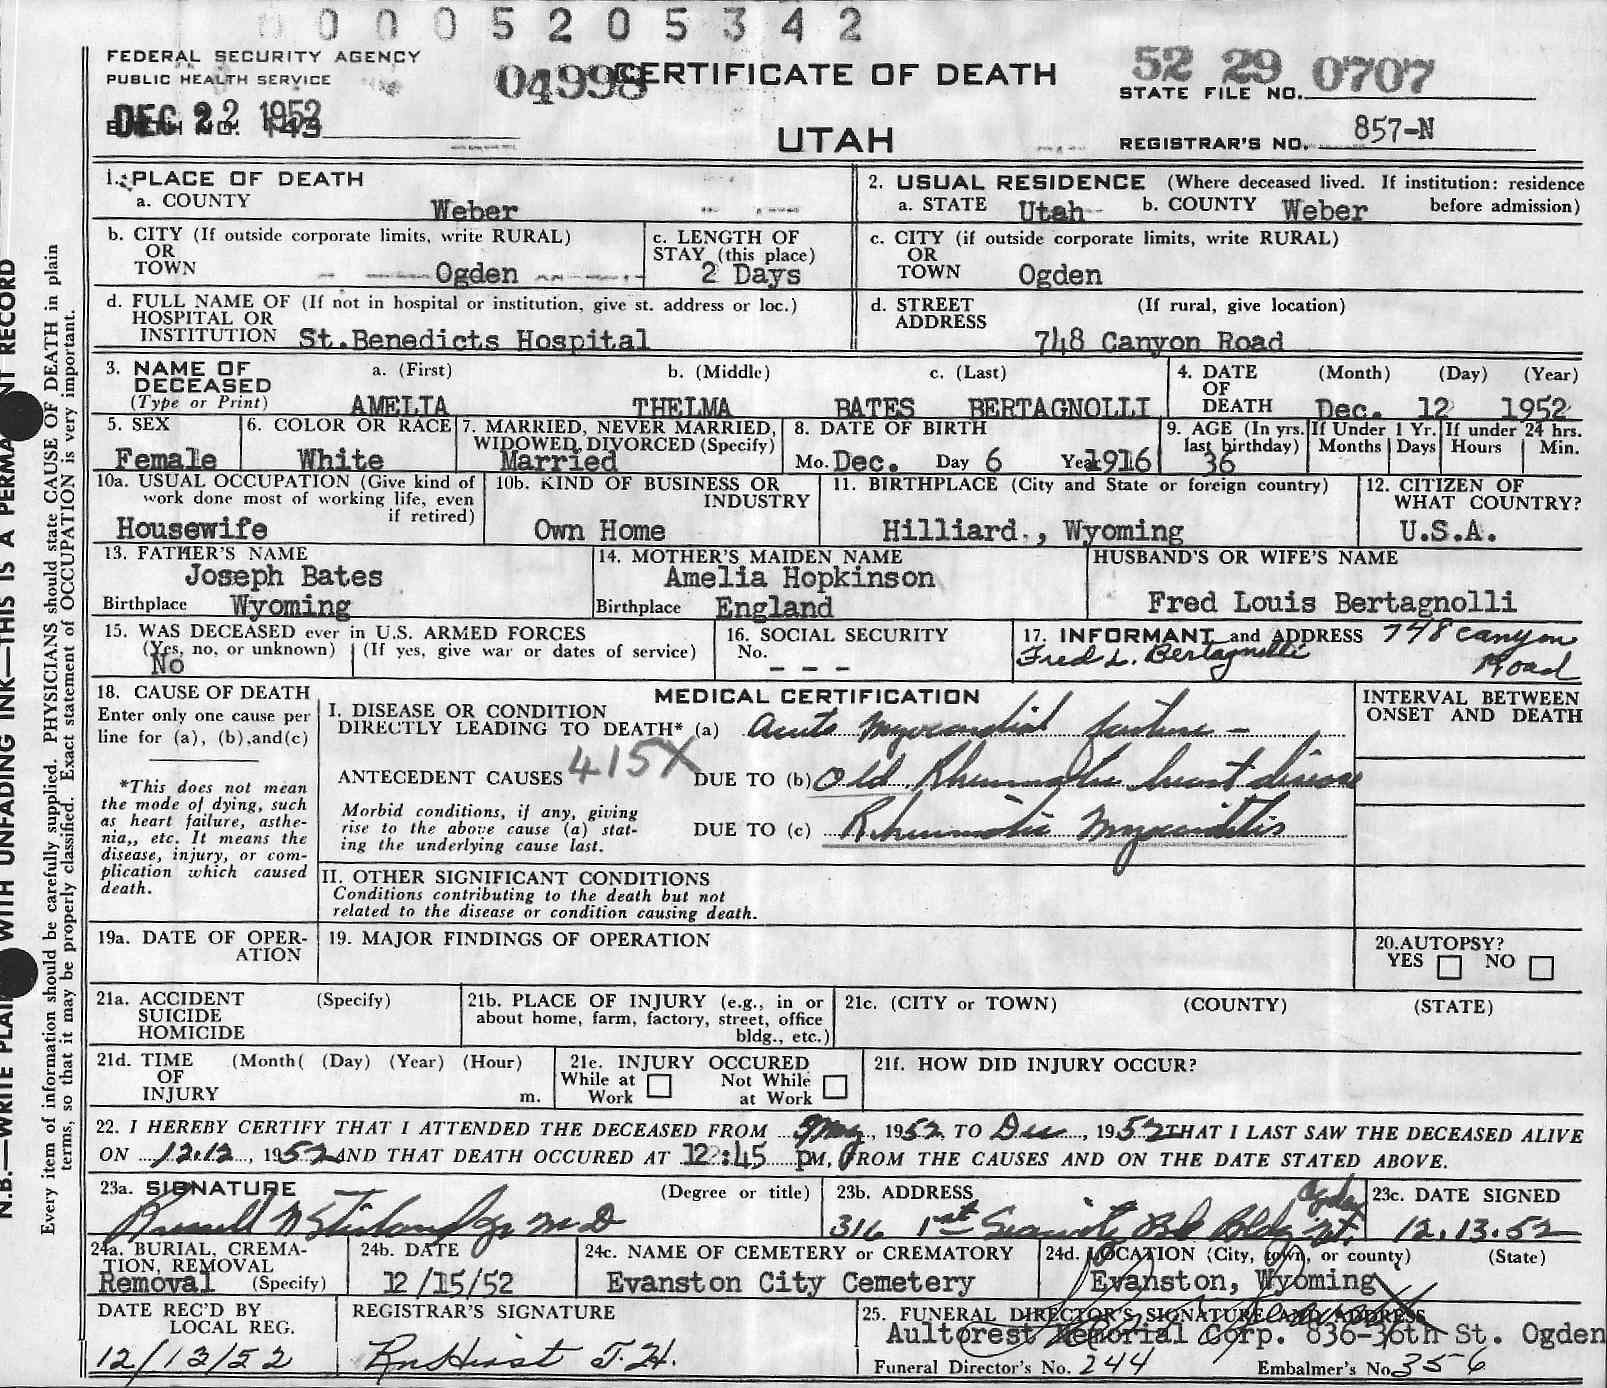 0 0 0 5 2 0 5 3 4 2
FEDERAL SECURITY AGENCY
PUBLIC HEALTH SERVICE
04998
CERTIFICATE OF DEATH
52 29 0707
STATE FILE NO.
DEC 22 1952
BIRTH NO. 143
UTAH
REGISTRAR'S NO. 857-N
N.B.—WRITE PLAINLY WITH UNFADING INK—THIS IS A PERMANENT RECORD
Every item of information should be carefully supplied. PHYSICIANS should state CAUSE OF DEATH in plain
terms, so that it may be properly classified. Exact statement of OCCUPATION is very important.
1. PLACE OF DEATH
a. COUNTY Weber
2. USUAL RESIDENCE (Where deceased lived. If institution: residence
before admission)
a. STATE Utah b. COUNTY Weber
b. CITY (If outside corporate limits, write RURAL)
OR
TOWN Ogden
c. LENGTH OF
STAY (this place)
2 Days
c. CITY (if outside corporate limits, write RURAL)
OR
TOWN Ogden
d. FULL NAME OF (If not in hospital or institution, give st. address or loc.)
HOSPITAL OR
INSTITUTION St.Benedicts Hospital
d. STREET (If rural, give location)
ADDRESS
748 Canyon Road
3. NAME OF a. (First) b. (Middle) c. (Last)
DECEASED
(Type or Print) AMELIA THELMA BATES BERTAGNOLLI
4. DATE (Month) (Day) (Year)
OF
DEATH Dec. 12 1952
5. SEX
Female
6. COLOR OR RACE
White
7. MARRIED, NEVER MARRIED,
WIDOWED, DIVORCED (Specify)
Married
8. DATE OF BIRTH
Mo. Dec. Day 6 Year 1916
9. AGE (In yrs.
last birthday)
36
If Under 1 Yr.
Months Days
If under 24 hrs.
Hours Min.
10a. USUAL OCCUPATION (Give kind of
work done most of working life, even
if retired)
Housewife
10b. KIND OF BUSINESS OR
INDUSTRY
Own Home
11. BIRTHPLACE (City and State or foreign country)
Hilliard., Wyoming
12. CITIZEN OF
WHAT COUNTRY?
U.S.A.
13. FATHER'S NAME
Joseph Bates
Birthplace Wyoming
14. MOTHER'S MAIDEN NAME
Amelia Hopkinson
Birthplace England
HUSBAND'S OR WIFE'S NAME
Fred Louis Bertagnolli
15. WAS DECEASED ever in U.S. ARMED FORCES
(Yes, no, or unknown) (If yes, give war or dates of service)
No
16. SOCIAL SECURITY
No. - - -
17. INFORMANT and ADDRESS 748 Canyon
Fred L. Bertagnolli Road
18. CAUSE OF DEATH
Enter only one cause per
line for (a), (b), and (c)
*This does not mean
the mode of dying, such
as heart failure, asthe-
nia,, etc. It means the
disease, injury, or com-
plication which caused
death.
MEDICAL CERTIFICATION
I. DISEASE OR CONDITION
DIRECTLY LEADING TO DEATH* (a) Acute Myocardial failure -
ANTECEDENT CAUSES 415X DUE TO (b) Old Rheumatic heart disease
Morbid conditions, if any, giving
rise to the above cause (a) stat-
ing the underlying cause last.
DUE TO (c) Rheumatic Myocarditis
INTERVAL BETWEEN
ONSET AND DEATH
II. OTHER SIGNIFICANT CONDITIONS
Conditions contributing to the death but not
related to the disease or condition causing death.
19a. DATE OF OPER-
ATION
19. MAJOR FINDINGS OF OPERATION
20. AUTOPSY?
YES NO
21a. ACCIDENT (Specify)
SUICIDE
HOMICIDE
21b. PLACE OF INJURY (e.g., in or
about home, farm, factory, street, office
bldg., etc.)
21c. (CITY or TOWN) (COUNTY) (STATE)
21d. TIME (Month( (Day) (Year) (Hour)
OF
INJURY m.
21e. INJURY OCCURED
While at Not While
Work at Work
21f. HOW DID INJURY OCCUR?
22. I HEREBY CERTIFY THAT I ATTENDED THE DECEASED FROM May, 1952, TO Dec, 1952 THAT I LAST SAW THE DECEASED ALIVE
ON 12.12, 1952 AND THAT DEATH OCCURED AT 12:45 PM, FROM THE CAUSES AND ON THE DATE STATED ABOVE.
23a. SIGNATURE (Degree or title)
Russell N Stirland Jr M D
23b. ADDRESS Ogden
316 1st Security Bk Bldg Ut.
23c. DATE SIGNED
12.13.52
24a. BURIAL, CREMA-
TION, REMOVAL
Removal (Specify)
24b. DATE
12/15/52
24c. NAME OF CEMETERY or CREMATORY
Evanston City Cemetery
24d. LOCATION (City, town, or county) (State)
Evanston, Wyoming
DATE REC'D BY
LOCAL REG.
12/13/52
REGISTRAR'S SIGNATURE
25. FUNERAL DIRECTOR'S SIGNATURE AND ADDRESS
Aultorest Memorial Corp. 836-36th St. Ogden
Funeral Director's No. 244 Embalmer's No. 356